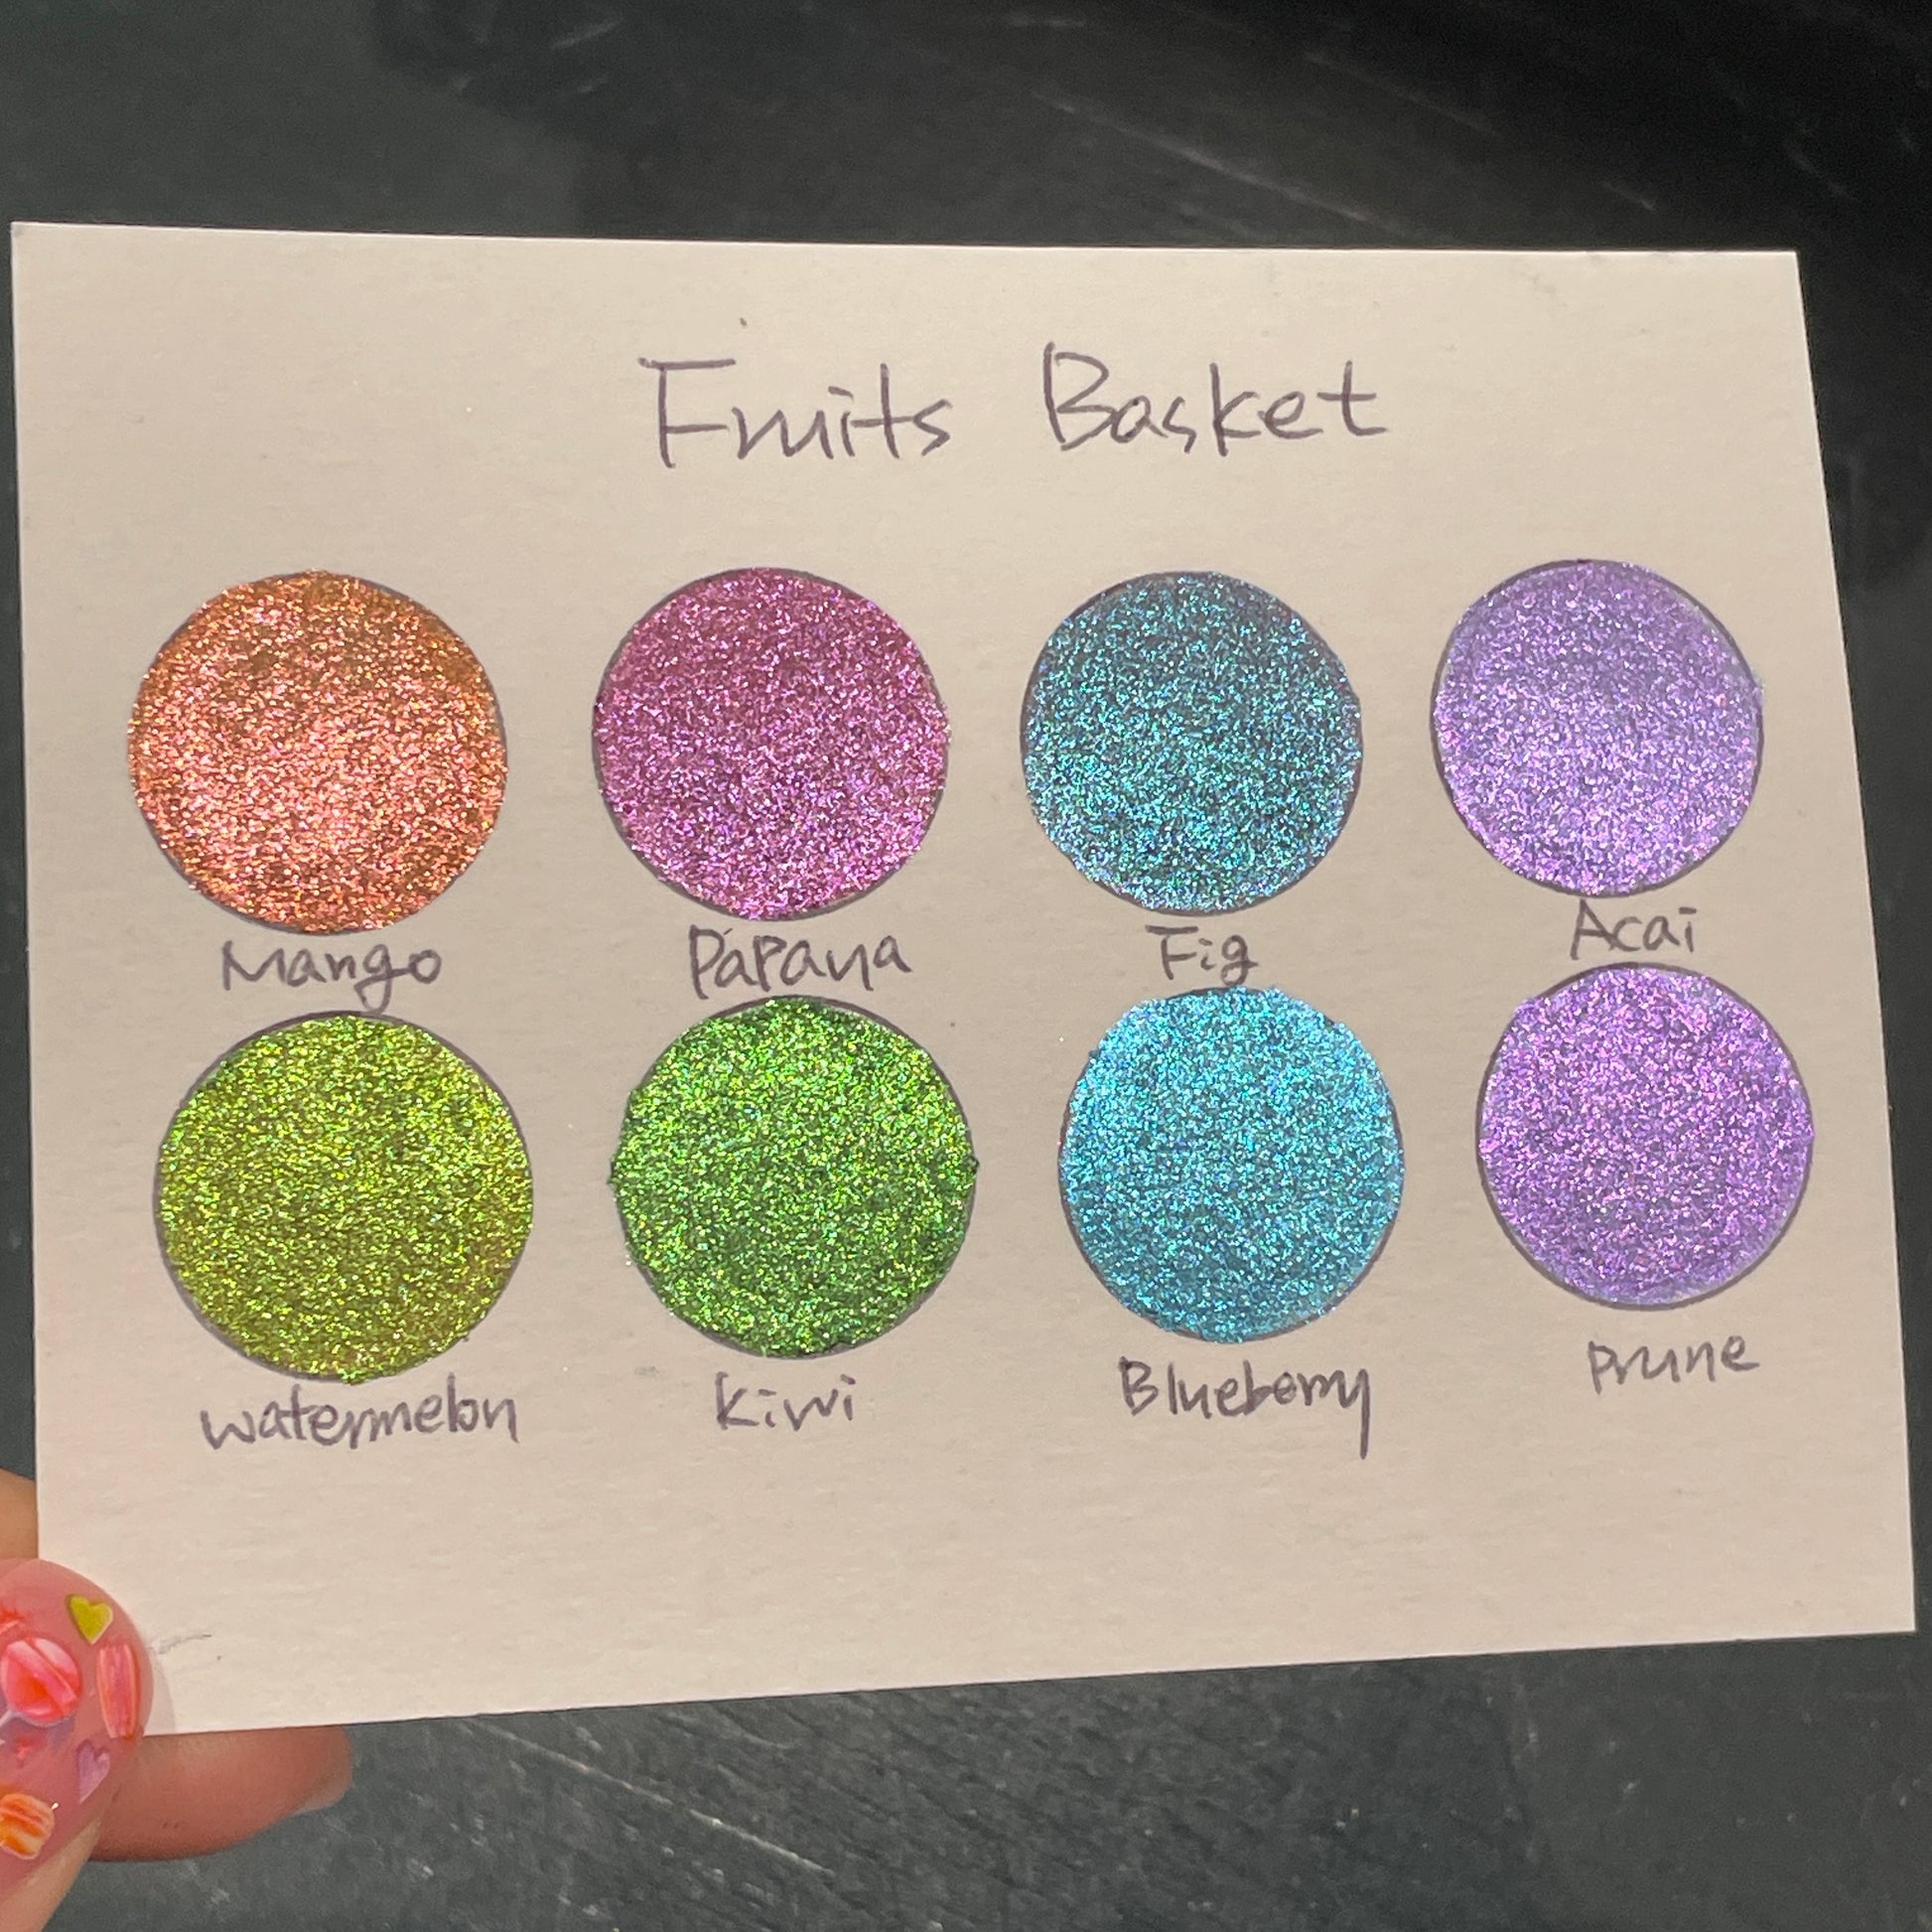 Fruits Basket
Mango Papaya Fig Acai
watermelon Kiwi Blueberry prune